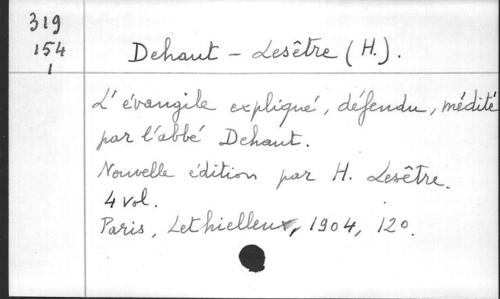 319
154
1
Dehaut - Lesêtre (H.).
L'évangile expliqué, défendu, médité
par l'abbé Dehaut.
Nouvelle édition par H. Lesêtre.
4 vol.
Paris, Lethielleux, 1904, 12o.